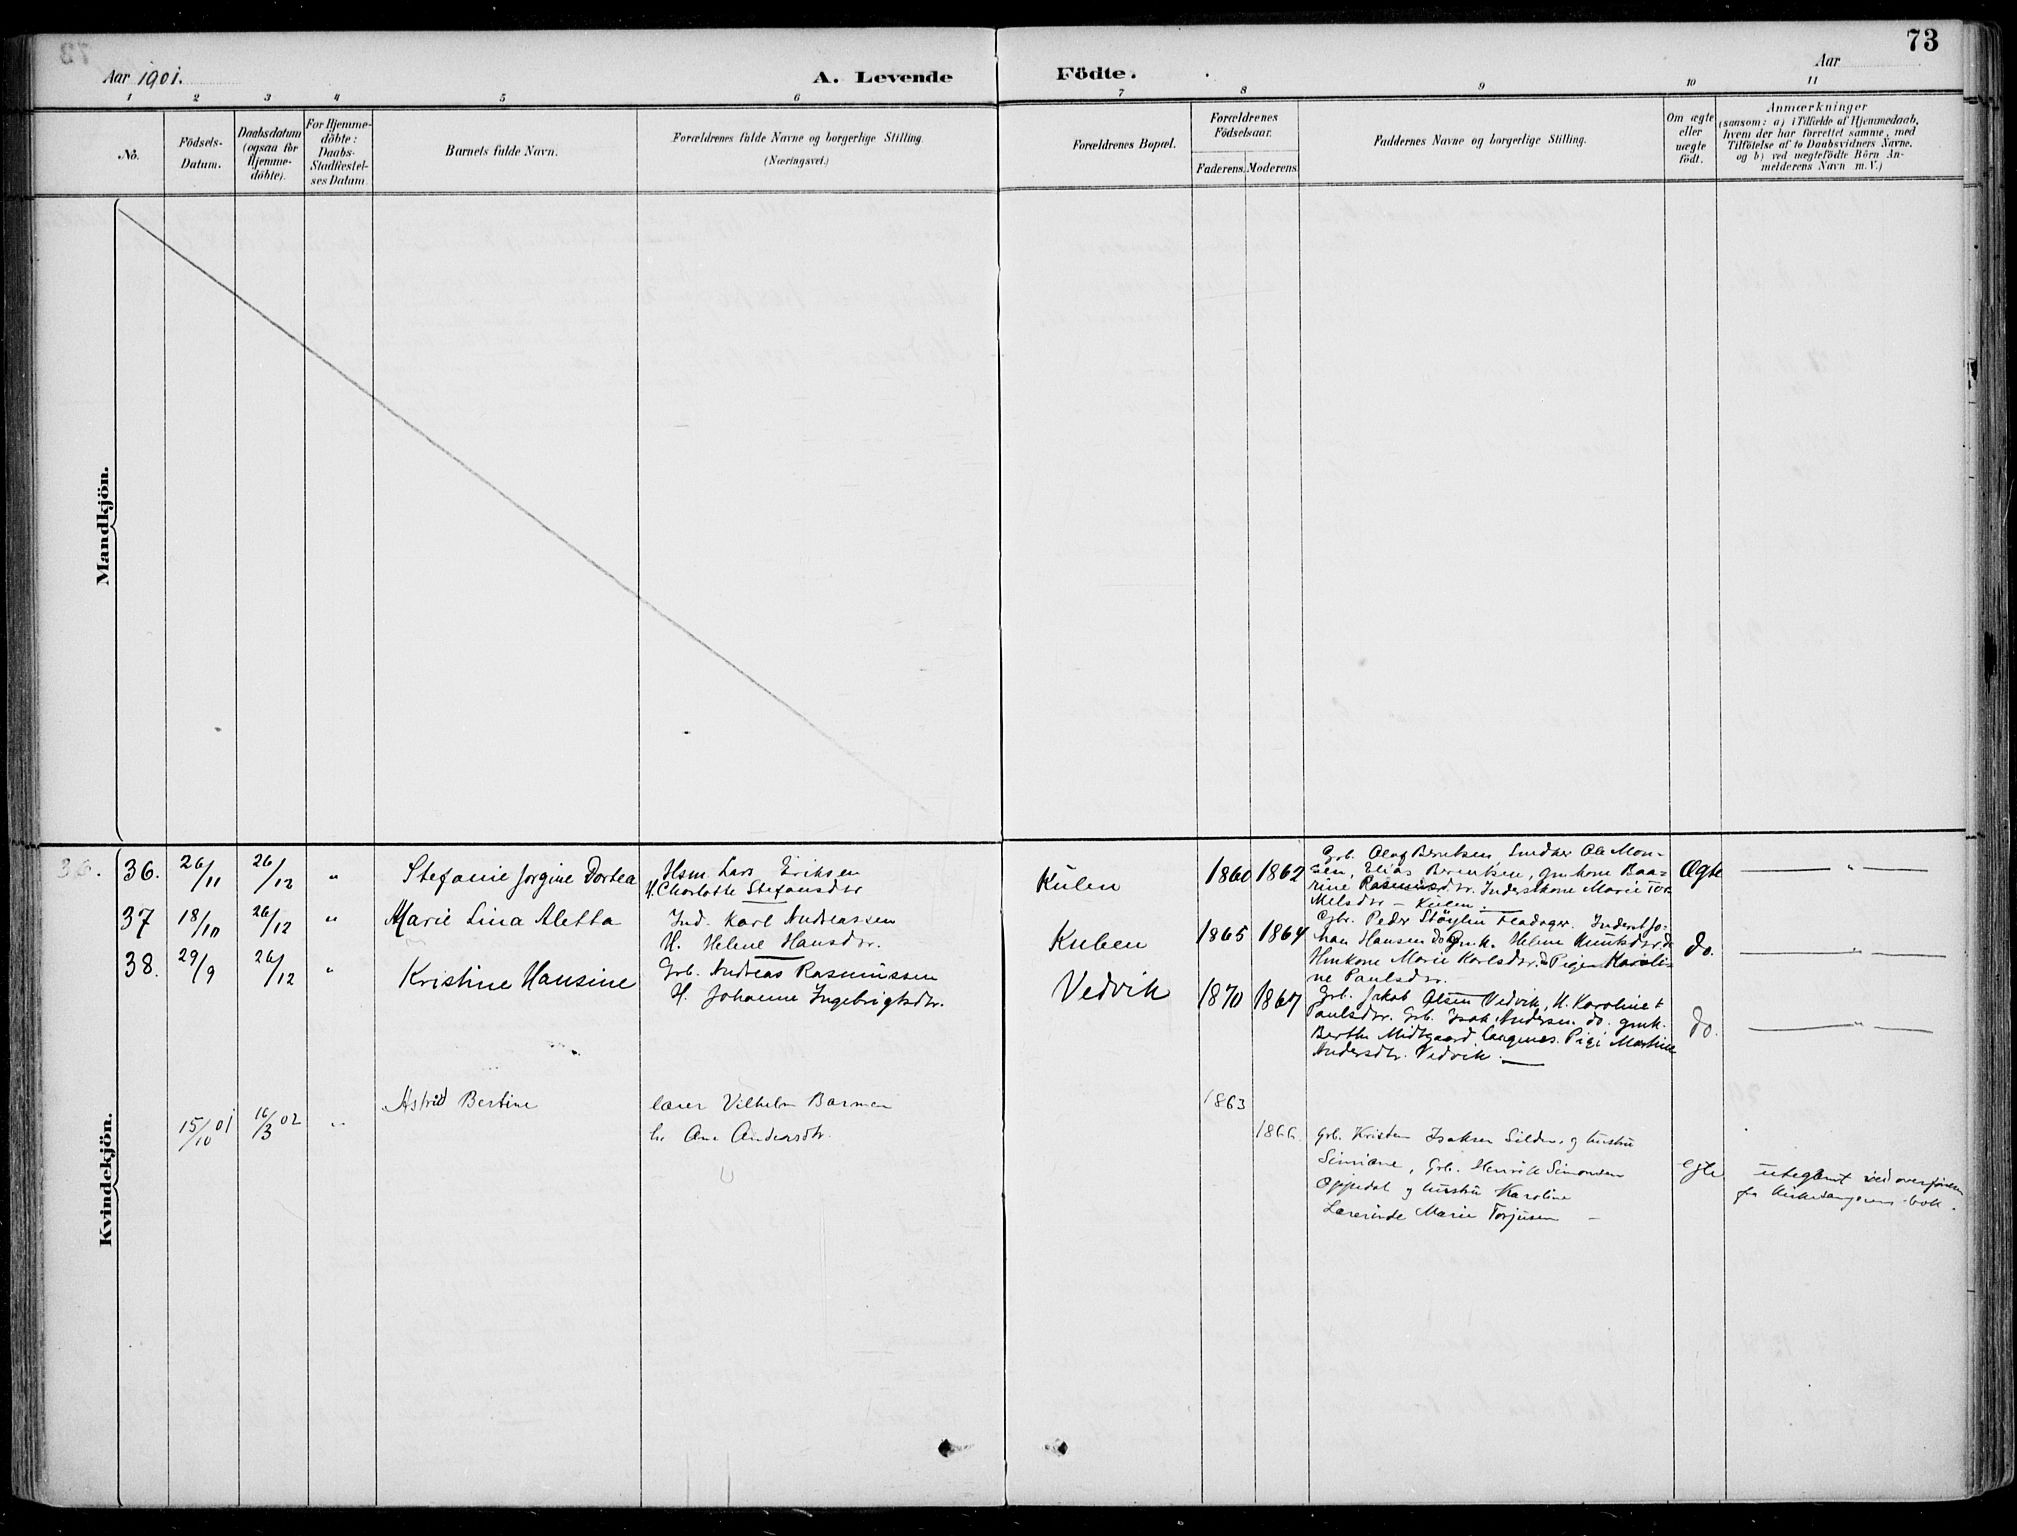 73
Aar 1901.
A. Levende Födte.
Aar
1 2 3 4 5 6 7 8 9 10 11
No.
Födsels-
Datum.
Daabsdatum
(ogsaa for
Hjemme-
döbte).
For Hjemme-
döbte:
Daabs-
Stadfæstel-
ses Datum
Barnets fulde Navn.
Forældrenes fulde Navne og borgerlige Stilling
(Næringsvei.)
Forældrenes Bopæl.
Forældrenes
Födselsaar.
Faderens. Moderens.
Faddernes Navne og borgerlige Stilling.
Om ægte
eller
uægte
födt.
Anmærkninger
(saasom: a) i Tilfælde af Hjemmedaab,
hvem der har forrettet samme, med
Tilföielse af to Daabsvidners Navne.
og b) ved uægtefödte Börn An-
melderens Navn m. V.)
Mandkjön.
Kvindekjön.
36.
36. 26/11 26/12 " Stefanie Jorgine Dortea
Hsm Lars Eriksen
H. Charlotte Stefansdtr
Kulen 1860 1862
Grb. Olaf Berntsen, Snedker Ole Mon-
sen, Elias Berentsen, gmkone Baa-
rine Rasmusdtr. Inderstkone Marie Tor
Nilsdtr - Kulen.
Ægte "
37 18/10 26/12 " Marie Lina Aletta
Ind. Karl Andreassen
H. Helene Hansdtr.
Kulen 1865 1864
Grb. Peder Støylen Inderst Jo-
han Hansen do Gmk. Helene Knutsdtr. do
Hmkone Marie Karlsdtr. do Pige Karoli-
ne Paulsdtr.
do. "
38. 29/9 26/12 " Kristine Hansine
Grb. Andreas Rasmussen
H. Johanne Ingebrigtsdtr.
Vedvik 1870 1867
Grb. Jakob Olsen Vedvik, H. Karoline
Paulsdtr. Grb. Isak Andersen do. gmk.
Berthe Midtgaard Pige Martine
Andersdtr. Vedvik.
do. "
15/10 01 16/3 02 " Astrid Bertine
lærer Vilhelm Barmen
h. Ane Andersdtr.
1863
1866.
Grb. Kristen Isaksen Silden og hustru
Simiane, Grb. Henrik Simonsen
Oppedal og hustru Karoline
Lærerinde Marie Torjusen -
egte
uteglemt ved overförelsen
fra kirkesangerens bok.